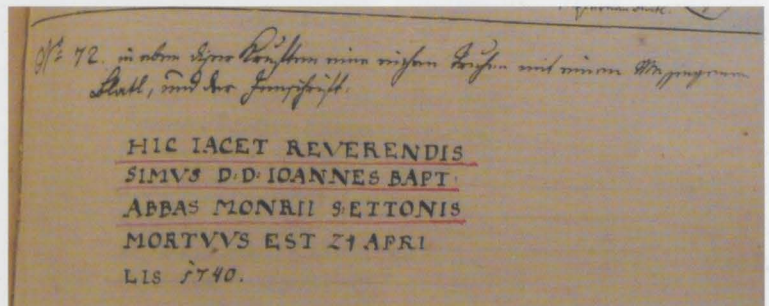 Nº 72. in eben diser Krufften eine aichene Truhen mit einem Messingenem
Blatl, und der Innschrifft.
HIC IACET REVERENDIS
SIMVS D:D: IOANNES BAPT:
ABBAS MONRII S: ETTONIS
MORTVVS EST 21 APRI
LIS 1740.